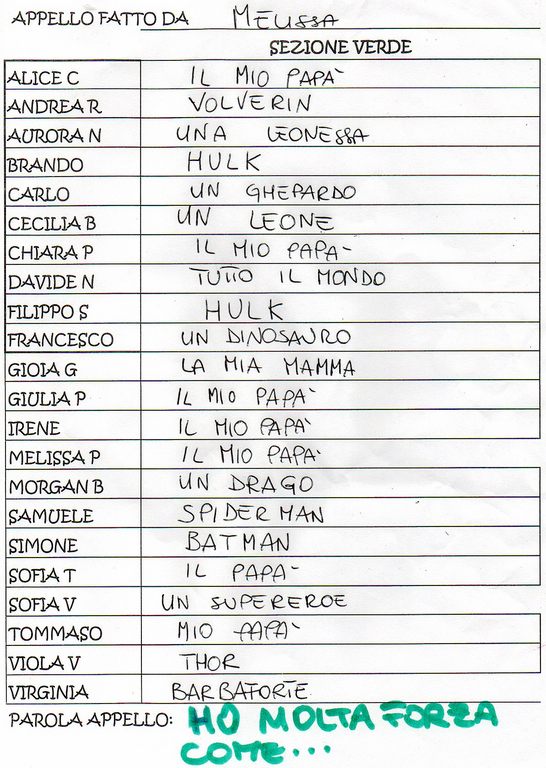 APPELLO FATTO DA MELISSA
SEZIONE VERDE
ALICE C IL MIO PAPA`
ANDREA R VOLVERIN
AURORA N UNA LEONESSA
BRANDO HULK
CARLO UN GHEPARDO
CECILIA B UN LEONE
CHIARA P IL MIO PAPA-
DAVIDE N TUTTO IL MONDO
FILIPPO S HULK
FRANCESCO UN DINOSAURO
GIOIA G LA MIA MAMMA
GIULIA P IL MIO PAPA`
IRENE IL MIO PAPA`
MELISSA P IL MIO PAPA`
MORGAN B UN DRAGO
SAMUELE SPIDER MAN
SIMONE BATMAN
SOFIA T IL PAPA-
SOFIA V UN SUPEREROE
TOMMASO MIO PAPA`
VIOLA V THOR
VIRGINIA BARBAFORTE
PAROLA APPELLO: HO MOLTA FORZA
COME...